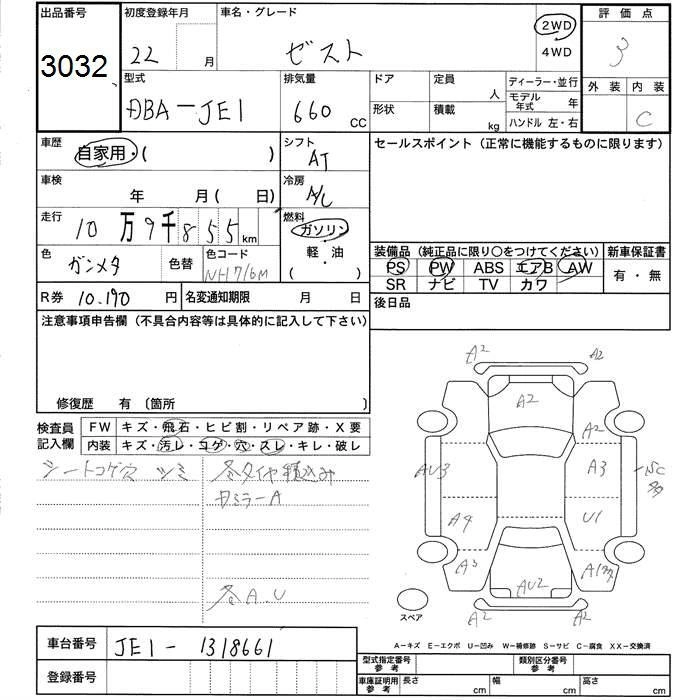 出品番号 初度登録年月 車名・グレード 評価点
3032 22 月 ゼスト 2WD 4WD 3
型式 排気量 ドア 定員 人 ディーラー・並行 外装 内装
DBA-JE1 660 CC 形状 積載 kg モデル年式 年 C
ハンドル 左・右
車歴 自家用・( ) シフト AT セールスポイント(正常に機能するものに限ります)
車検 年 月( 日) 冷房 A/C
走行 10万9千855km 燃料 ガソリン・軽・油 ( )
色 ガンメタ 色替 色コード NH716M
装備品(純正品に限り○をつけてください) 新車保証書
PS PW ABS エアB AW 有・無
SR ナビ TV カワ
R券 10,190 円 名変通知期限 月 日 後日品
注意事項申告欄(不具合内容等は具体的に記入して下さい)
修復歴 有 〔箇所 〕
検査員記入欄 FW キズ・飛石・ヒビ割・リペア跡・X要
内装 キズ・汚レ・コゲ・穴・スレ・キレ・破レ
シートコゲ穴 シミ 冬タイヤ積込み
ミラーA
各A.U
A2 A2
A2
A2
AU3 A3
A4 U1
A3
AU2
A2 A2
スペア
A-キズ E-エクボ U-凹み W-補修跡 S-サビ C-腐食 XX-交換済
車台番号 JE1-1318661
登録番号
型式指定番号 参考 類別区分番号 参考
車庫証明用 参考 長さ cm 幅 cm 高さ cm